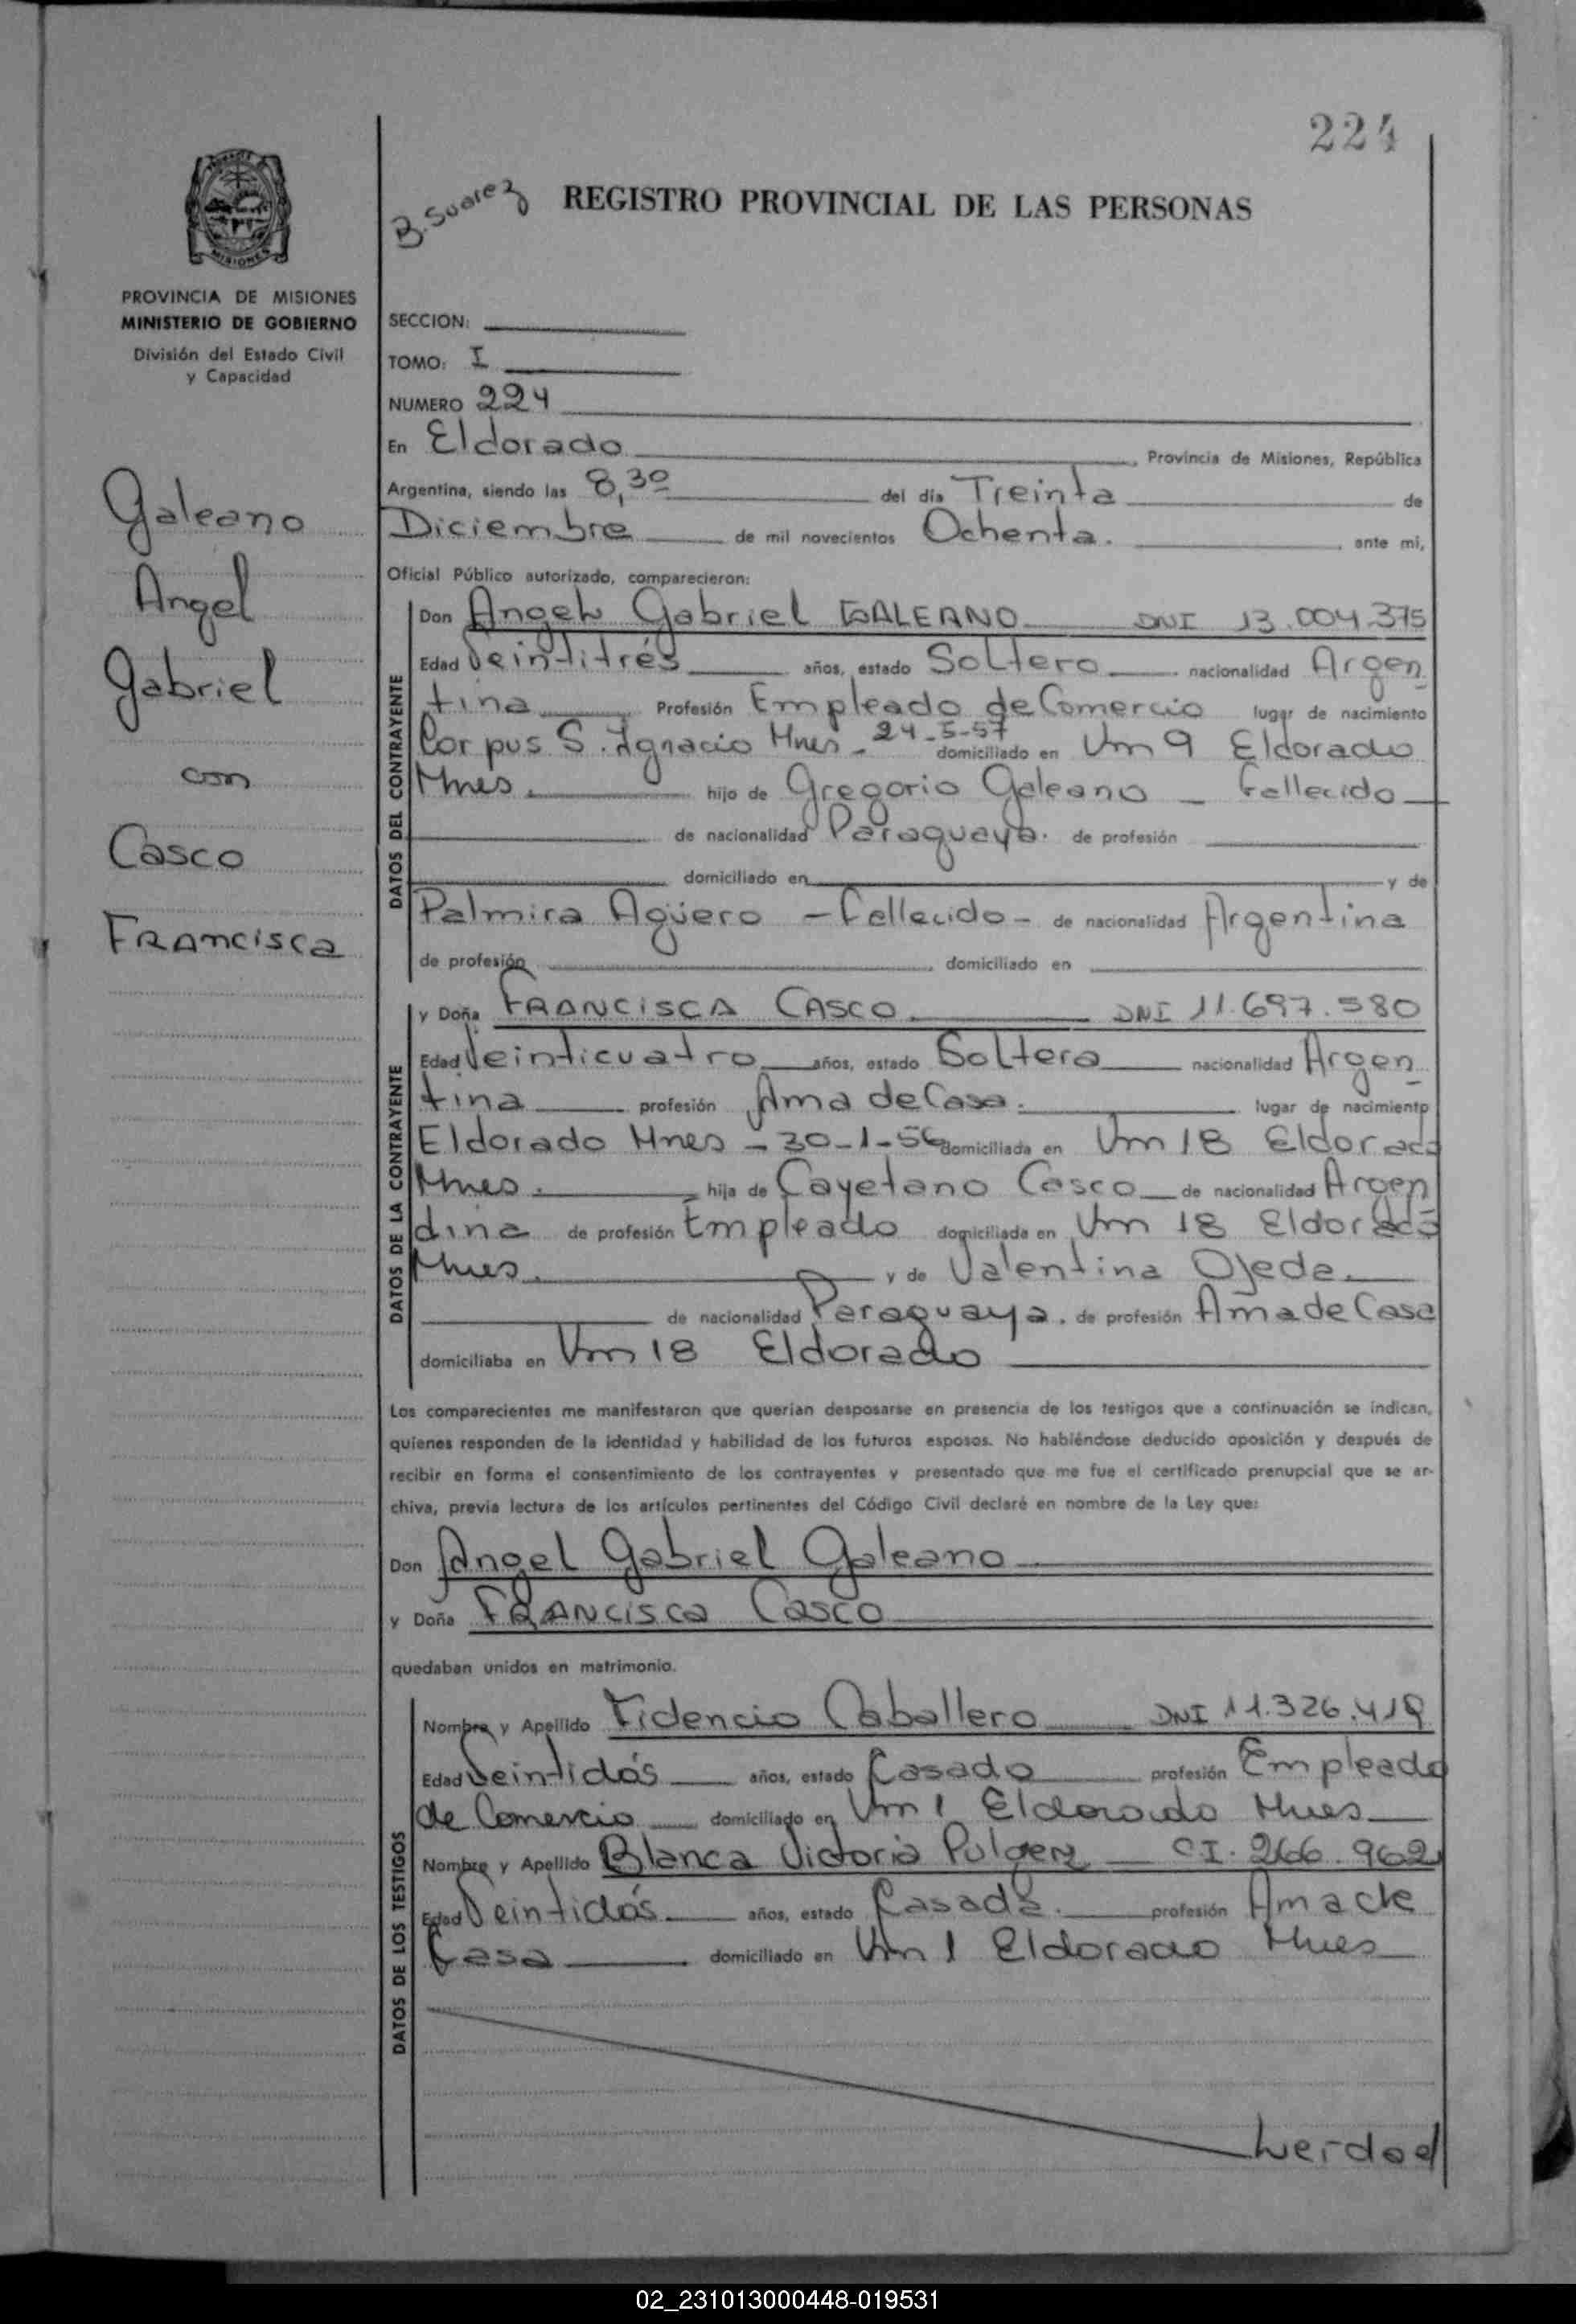 224
B. Suarez
REGISTRO PROVINCIAL DE LAS PERSONAS
MISIONES
PROVINCIA DE MISIONES
MINISTERIO DE GOBIERNO
División del Estado Civil
y Capacidad
Galeano
Angel
Gabriel
con
Casco
FRANCISCA
SECCION:
TOMO: I
NUMERO 224
En Eldorado, Provincia de Misiones, República
Argentina, siendo las 8,30 del día Treinta de
Diciembre de mil novecientos Ochenta. ante mi,
Oficial Público autorizado, comparecieron:
DATOS DEL CONTRAYENTE
Don Angel Gabriel GALEANO DNI 13.004.375
Edad Veintitrés años, estado Soltero nacionalidad Argen
tina Profesión Empleado de Comercio lugar de nacimiento
Corpus S. Ignacio Mnes - 24-5-57 domiciliado en Km 9 Eldorado
Mnes. hijo de Gregorio Galeano - Fallecido
de nacionalidad Paraguaya. de profesión
domiciliado en y de
Palmira Agüero - Fallecido - de nacionalidad Argentina
de profesión domiciliado en
DATOS DE LA CONTRAYENTE
y Doña FRANCISCA CASCO DNI 11.697.580
Edad Veinticuatro años, estado Soltera nacionalidad Argen
tina profesión Ama de Casa. lugar de nacimiento
Eldorado Mnes - 30-1-56 domiciliada en Km 18 Eldorado
Mnes. hija de Cayetano Casco de nacionalidad Argen
tina de profesión Empleado domiciliada en Km 18 Eldorado
Mnes. y de Valentina Ojeda.
de nacionalidad Paraguaya. de profesión Ama de Casa
domiciliaba en Km 18 Eldorado
Los comparecientes me manifestaron que querían desposarse en presencia de los testigos que a continuación se indican,
quienes responden de la identidad y habilidad de los futuros esposos. No habiéndose deducido oposición y después de
recibir en forma el consentimiento de los contrayentes y presentado que me fue el certificado prenupcial que se ar-
chiva, previa lectura de los artículos pertinentes del Código Civil declaré en nombre de la Ley que:
Don Angel Gabriel Galeano
y Doña FRANCISCA Casco
quedaban unidos en matrimonio.
DATOS DE LOS TESTIGOS
Nombre y Apellido Fidencio Caballero DNI 11.326.419
Edad Veintidós años, estado Casado profesión Empleado
de Comercio domiciliado en Km 1 Eldorado Mnes
Nombre y Apellido Blanca Victoria CI. 266.962
Edad Veintidós años, estado Casada. profesión Ama de
Casa domiciliado en Km 1 Eldorado Mnes
02_231013000448-019531